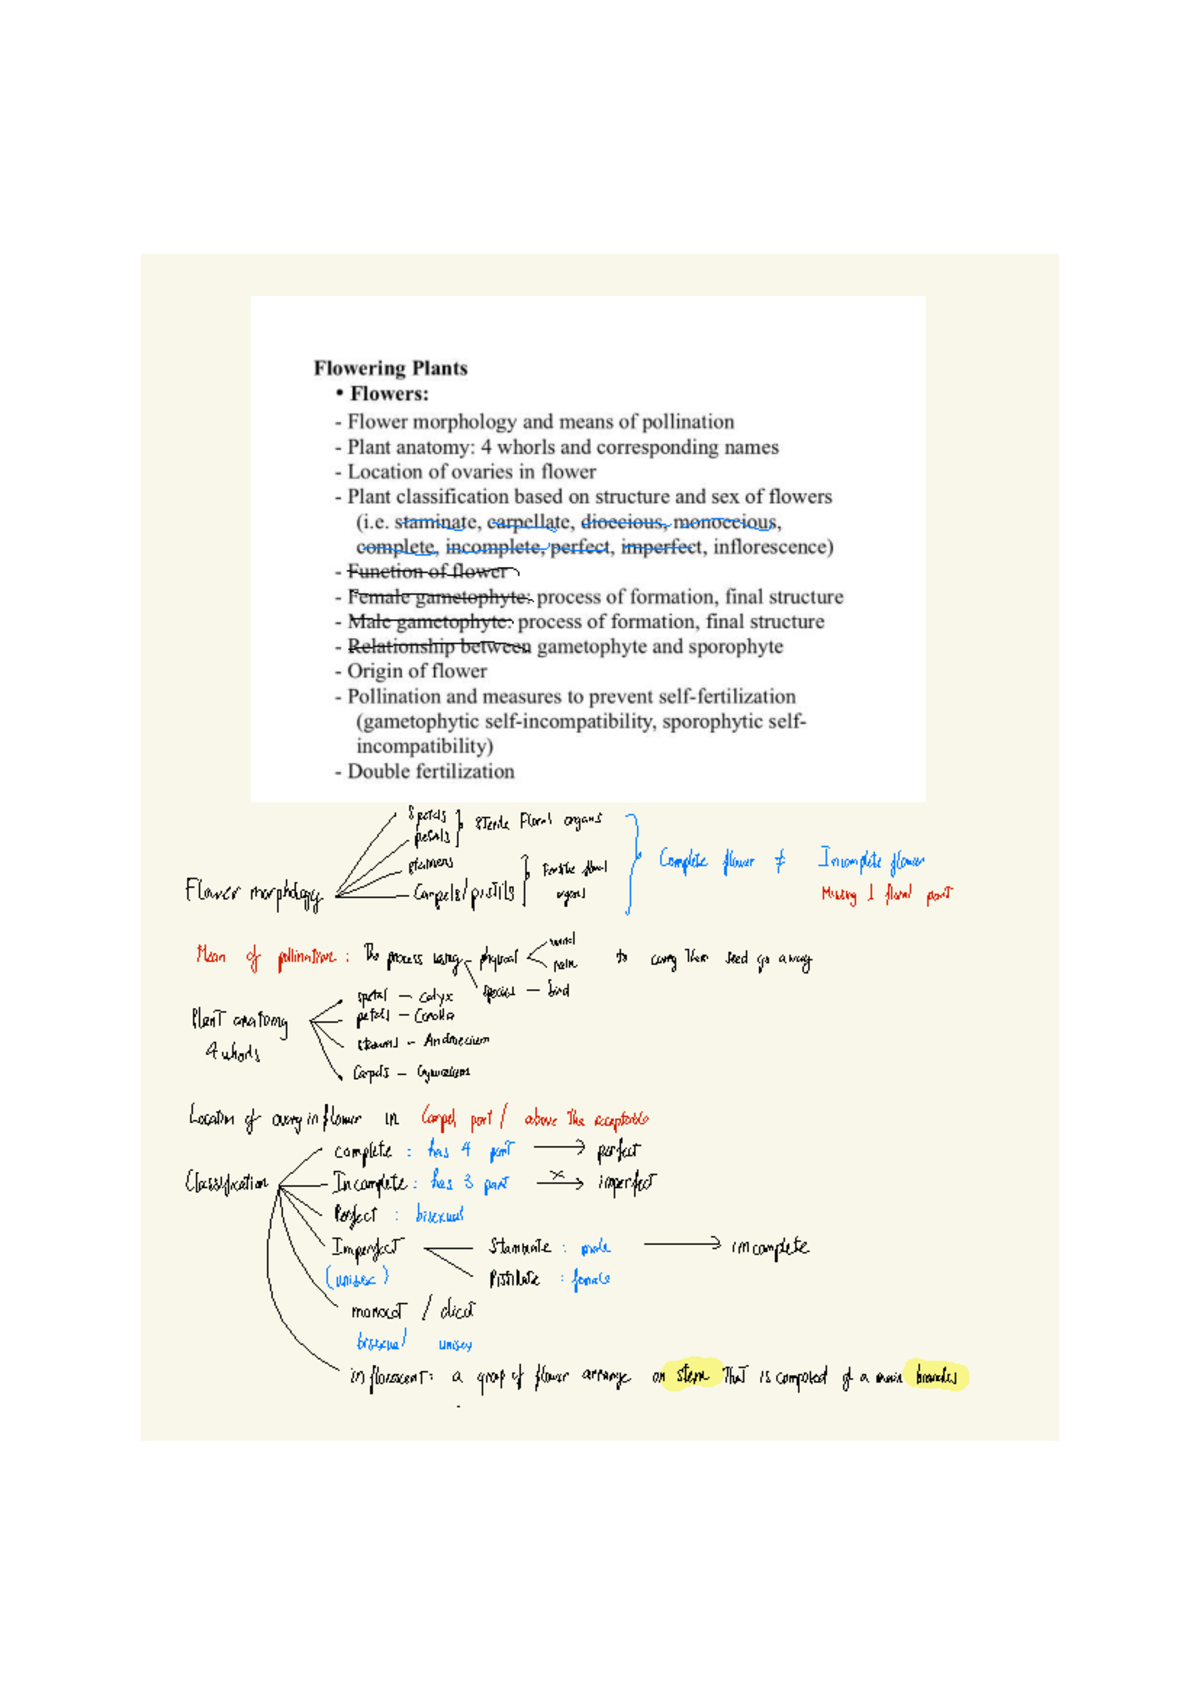 Flowering Plants
• Flowers:
- Flower morphology and means of pollination
- Plant anatomy: 4 whorls and corresponding names
- Location of ovaries in flower
- Plant classification based on structure and sex of flowers
(i.e. staminate, carpellate, dioecious, monoecious,
complete, incomplete, perfect, imperfect, inflorescence)
- Function of flower
- Female gametophyte: process of formation, final structure
- Male gametophyte: process of formation, final structure
- Relationship between gametophyte and sporophyte
- Origin of flower
- Pollination and measures to prevent self-fertilization
(gametophytic self-incompatibility, sporophytic self-
incompatibility)
- Double fertilization
Spetals
petals } sterile Floral organs
stamens
Carpels/pistils } Fertile floral organs
Flower morphology
Complete flower ≠ Incomplete flower
Missing 1 floral part
Mean of pollination : The process using - physical
wind
to carry their seed go away
species - bird
spetal - calyx
petals - Corolla
Plant anatomy
4 whorls
stamens - Androecium
Carpels - Gynoecium
Location of ovary in flower in Carpel part / above the receptable
complete : has 4 part → perfect
Classification
Incomplete : has 3 part x→ imperfect
Perfect : bisexual
Imperfect — Staminate : male → incomplete
(unisex) Pistilate : female
monocot / dicot
bisexual unisex
inflorescent: a group of flower arrange on stem That is composed of a main branches